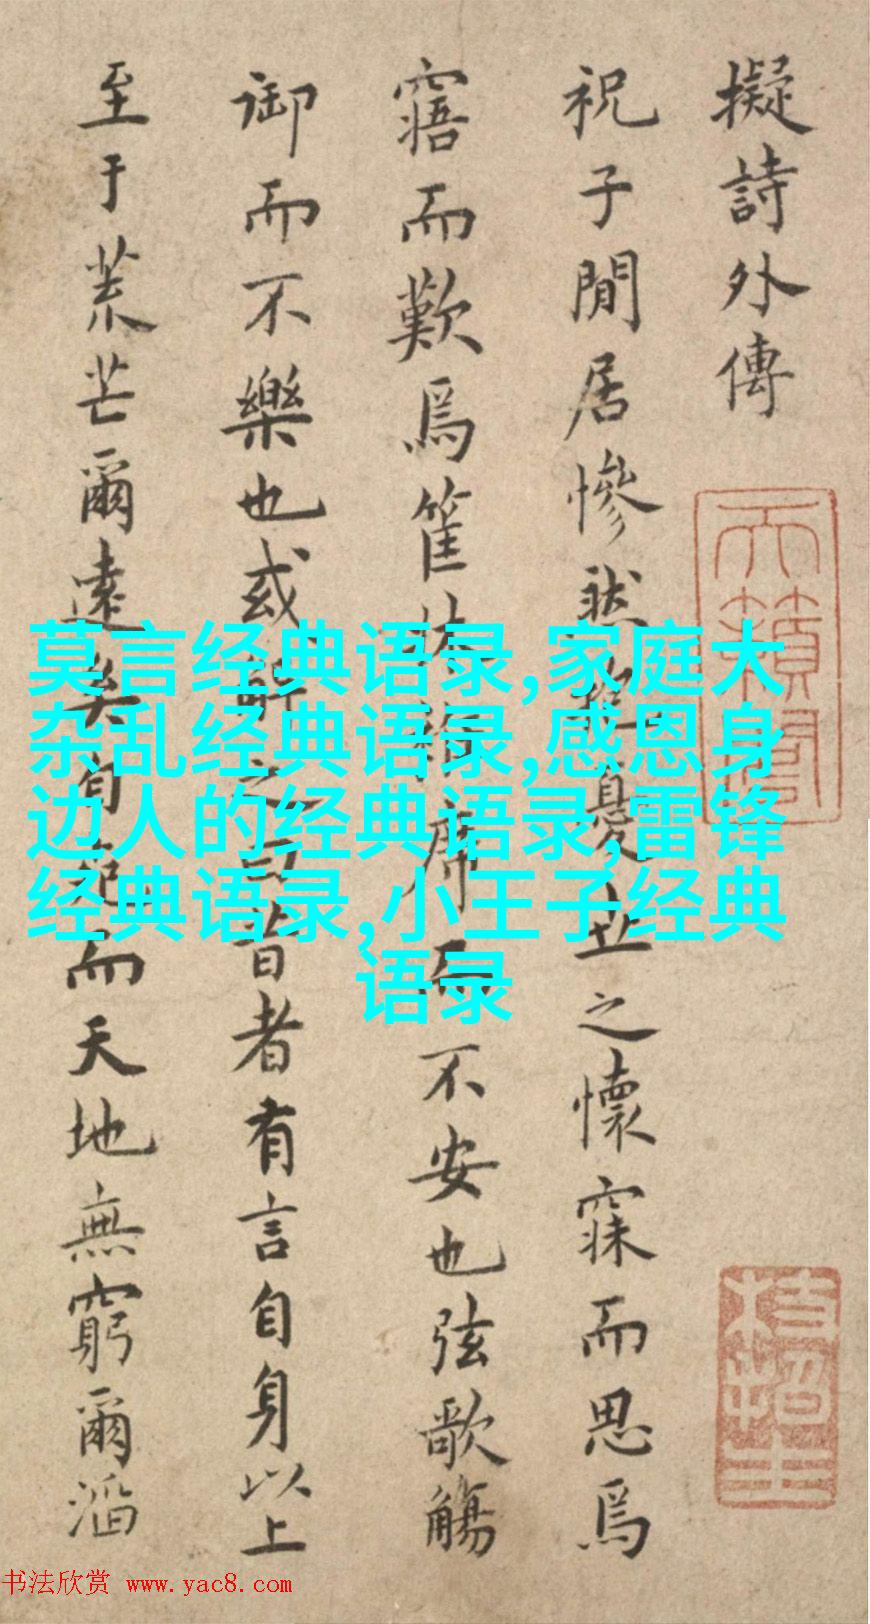 擬詩外傳
祝子閒居慘然變世之懷寐而思焉
寤而歎焉筐牀席而不安也弦歌觴
御而不樂也或解之曰昔者有言自身以上
至于荒芒爾遠矣自死而天地無窮爾滔
天籟閣
枝指生
莫言经典语录,家庭大
杂乱经典语录,感恩身
边人的经典语录,雷锋
经典语录,小王子经典
语录
书法欣赏 www.yac8.com